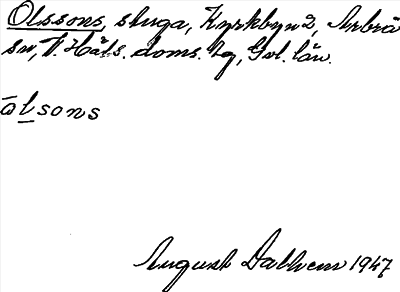 Olssons, stuga, Kyrkbyn 2, Arbrå
sn, V. Häls. doms. tg, Gvl. län.
ōlsons
August Dalhem 1947